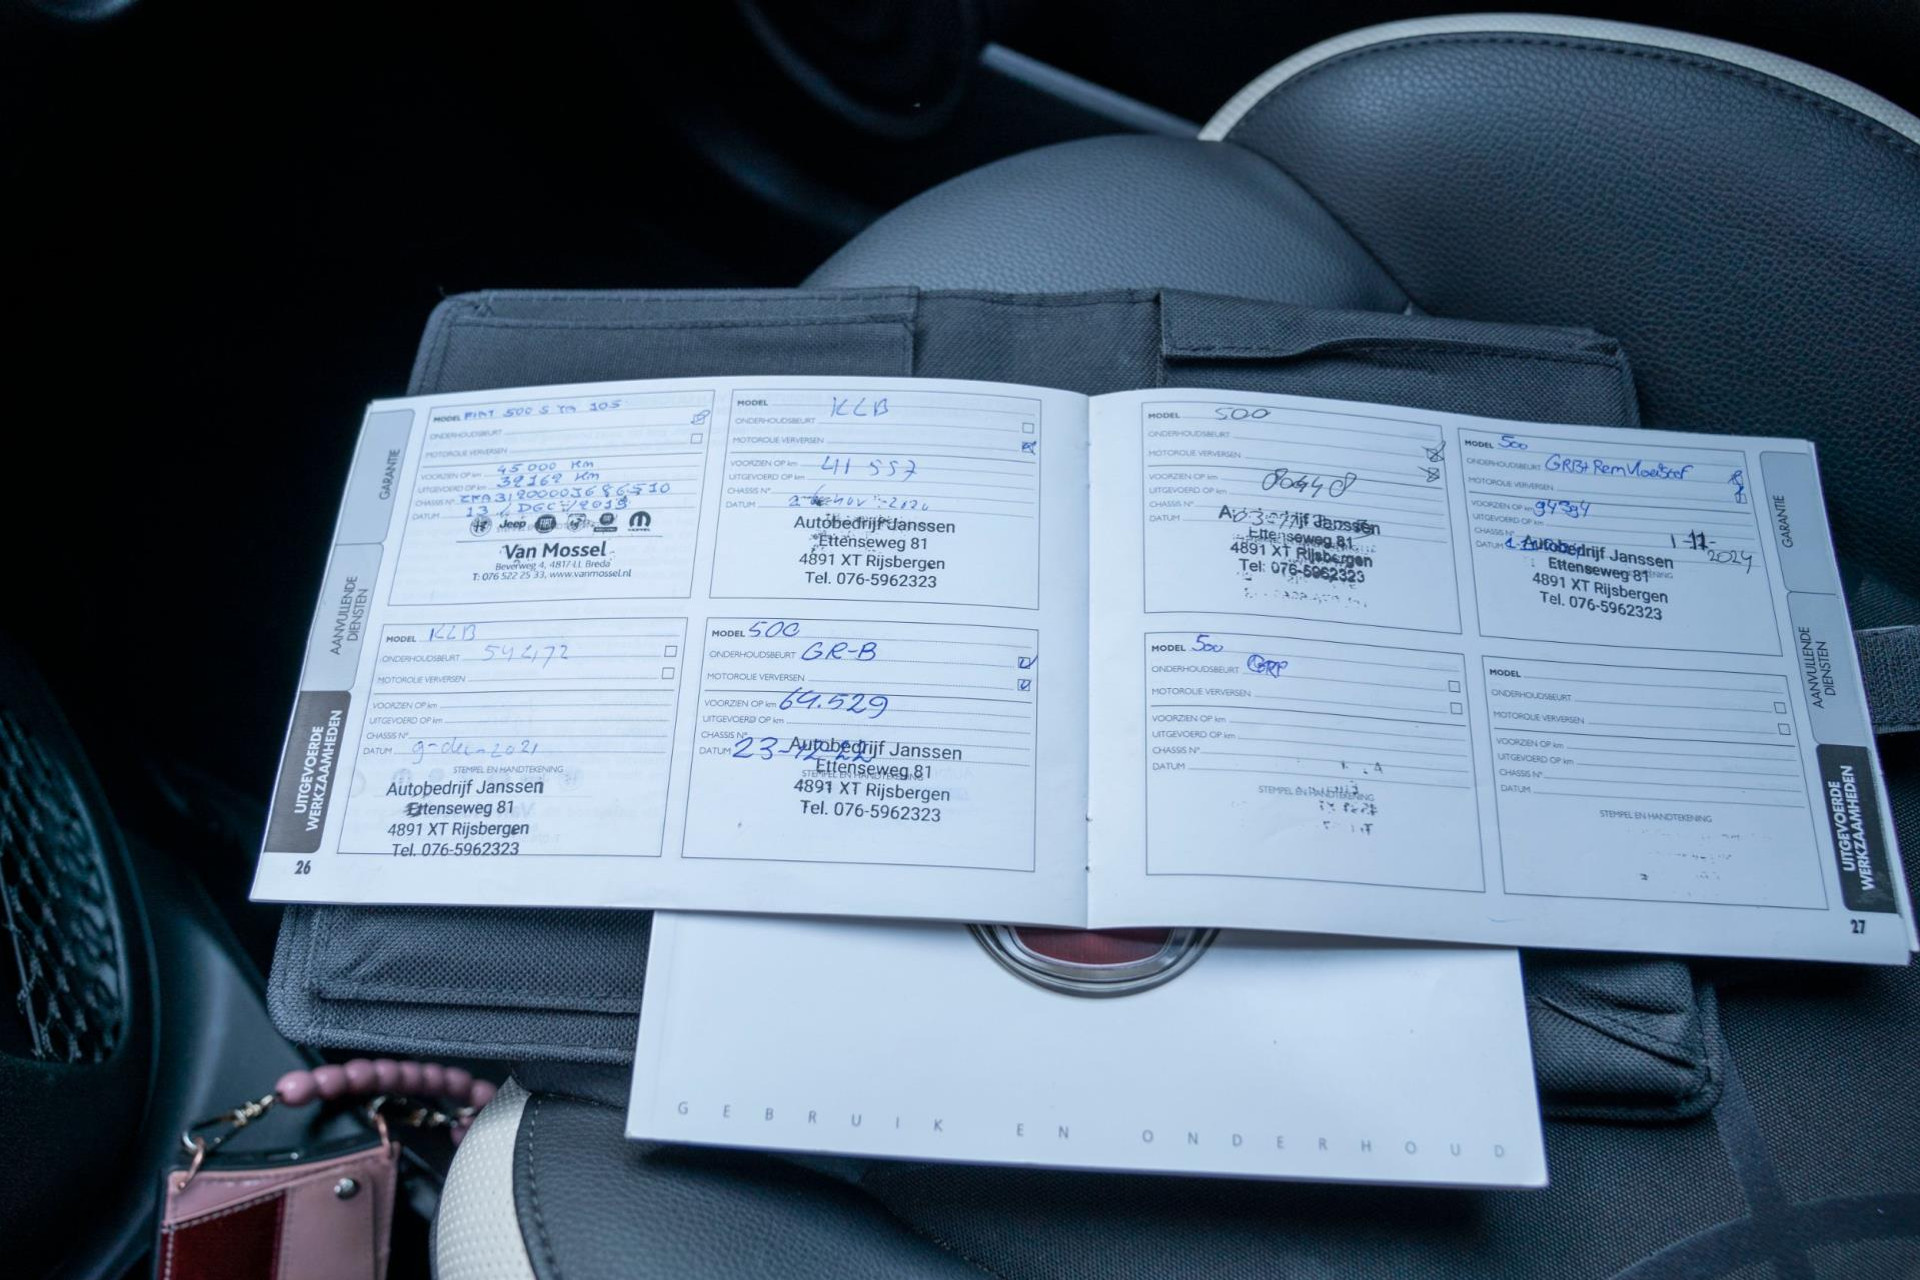 GARANTIE
AANVULLENDE
DIENSTEN
UITGEVOERDE
WERKZAAMHEDEN
26
MODEL FIAT 500 S
ONDERHOUDSBEURT
MOTOROLIE VERVERSEN
VOORZIEN OP km 45.000 Km
UITGEVOERD OP km 32162 Km
CHASSIS N°
DATUM 13 / DEC / 2019
Jeep
Van Mossel
Beverweg 4, 4817 LL Breda
T: 076 522 25 33, www.vanmossel.nl
MODEL KLB
ONDERHOUDSBEURT
MOTOROLIE VERVERSEN
VOORZIEN OP km 41 557
UITGEVOERD OP km
CHASSIS N°
DATUM nov - 2020
Autobedrijf Janssen
Ettenseweg 81
4891 XT Rijsbergen
Tel. 076-5962323
MODEL KLB
ONDERHOUDSBEURT
MOTOROLIE VERVERSEN
VOORZIEN OP km
UITGEVOERD OP km
CHASSIS N°
DATUM 9-dec-2021
STEMPEL EN HANDTEKENING
Autobedrijf Janssen
Ettenseweg 81
4891 XT Rijsbergen
Tel. 076-5962323
MODEL 500
ONDERHOUDSBEURT GR-B
MOTOROLIE VERVERSEN
VOORZIEN OP km 69.529
UITGEVOERD OP km
CHASSIS N°
DATUM 23-12-22
STEMPEL EN HANDTEKENING
Autobedrijf Janssen
Ettenseweg 81
4891 XT Rijsbergen
Tel. 076-5962323
MODEL 500
ONDERHOUDSBEURT
MOTOROLIE VERVERSEN
VOORZIEN OP km
UITGEVOERD OP km
CHASSIS N°
DATUM
Autobedrijf Janssen
Ettenseweg 81
4891 XT Rijsbergen
Tel: 076-5962323
MODEL 500
ONDERHOUDSBEURT GRB+ Remvloeistof
MOTOROLIE VERVERSEN
VOORZIEN OP km 94394
UITGEVOERD OP km
CHASSIS N°
DATUM 1-11-2024
Autobedrijf Janssen
Ettenseweg 81
4891 XT Rijsbergen
Tel. 076-5962323
MODEL 500
ONDERHOUDSBEURT
MOTOROLIE VERVERSEN
VOORZIEN OP km
UITGEVOERD OP km
CHASSIS N°
DATUM
STEMPEL EN HANDTEKENING
MODEL
ONDERHOUDSBEURT
MOTOROLIE VERVERSEN
VOORZIEN OP km
UITGEVOERD OP km
CHASSIS N°
DATUM
STEMPEL EN HANDTEKENING
GARANTIE
AANVULLENDE
DIENSTEN
UITGEVOERDE
WERKZAAMHEDEN
27
GEBRUIK EN ONDERHOUD